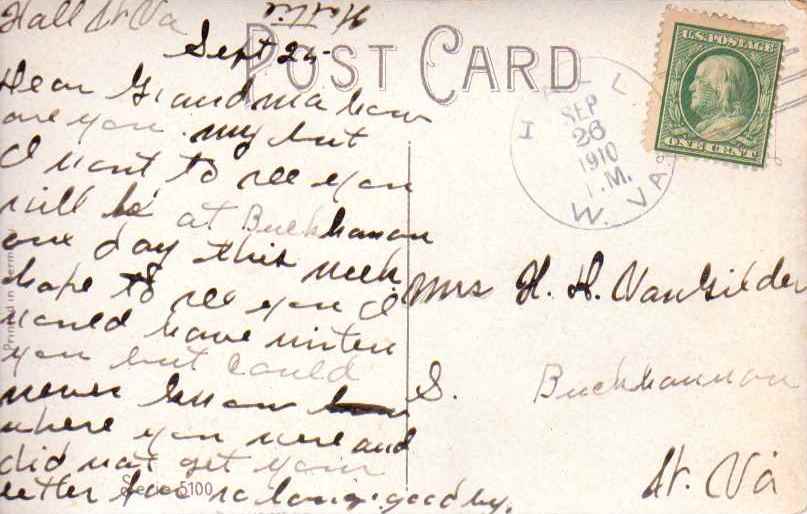 Hall W. Va
Hattie
Sept 25-
POST CARD
Dear Grandma how
are you. my but
I want to see you
will be at Buckhanon
one day this week
hope to see you I
would have writen
you but could
never know
where you were and
did not get your
letter for so long. good by.
Mrs H. H. VanGilder
S. Buckhannon
W. Va
U.S. POSTAGE
ONE CENT
SEP
26
1910
W. VA.
Printed in Germany
Serie 5100